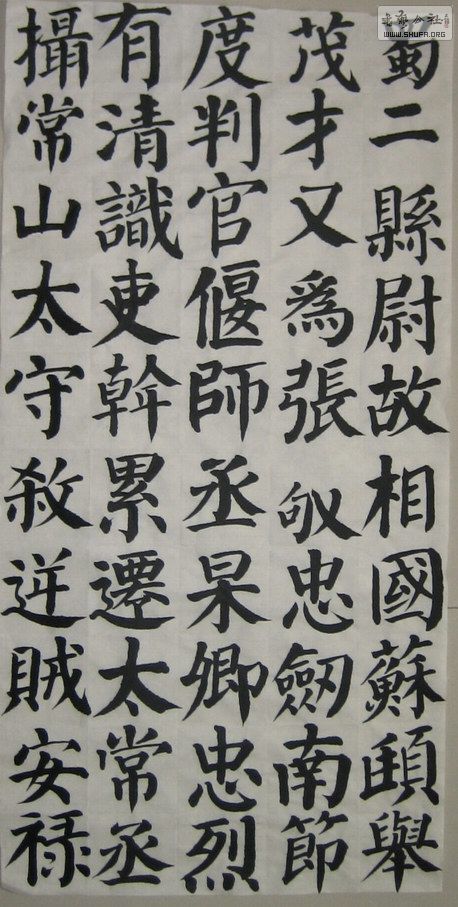 蜀二縣尉故相國蘇頲舉
茂才又爲張敬忠劒南節
度判官偃師丞杲卿忠烈
有清識吏幹累遷太常丞
攝常山太守殺逆賊安祿
公社
WWW.SHUFA.ORG